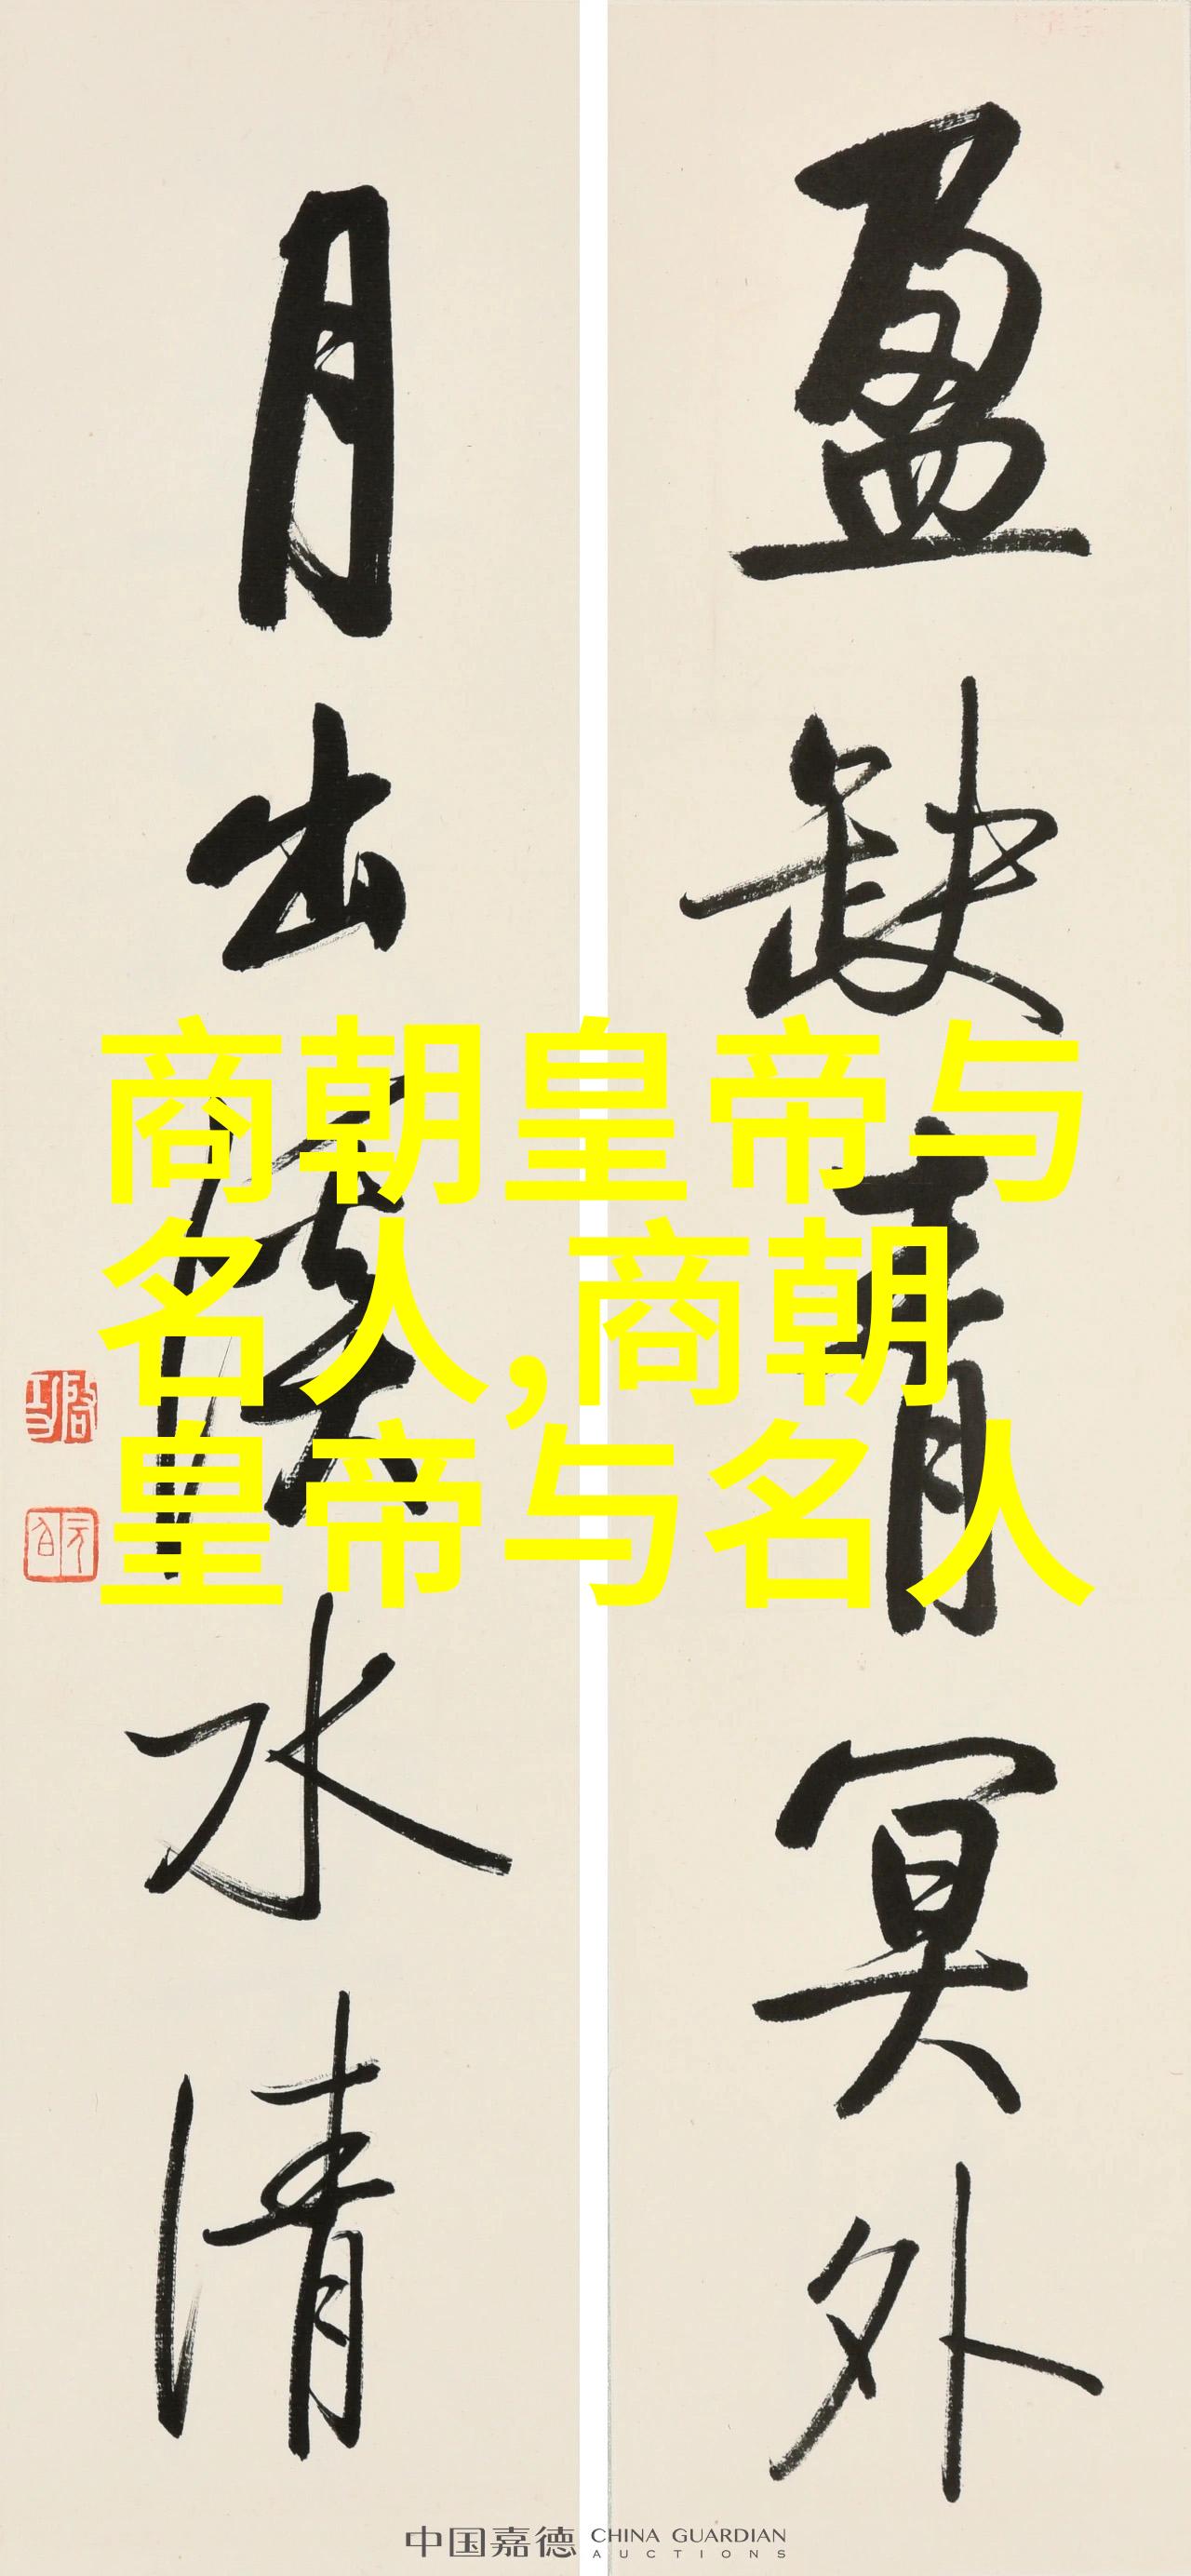 盈缺青冥外
月出溪水清
啓功
元白
商朝皇帝与
名人,商朝
皇帝与名人
中国嘉德 CHINA GUARDIAN
AUCTIONS